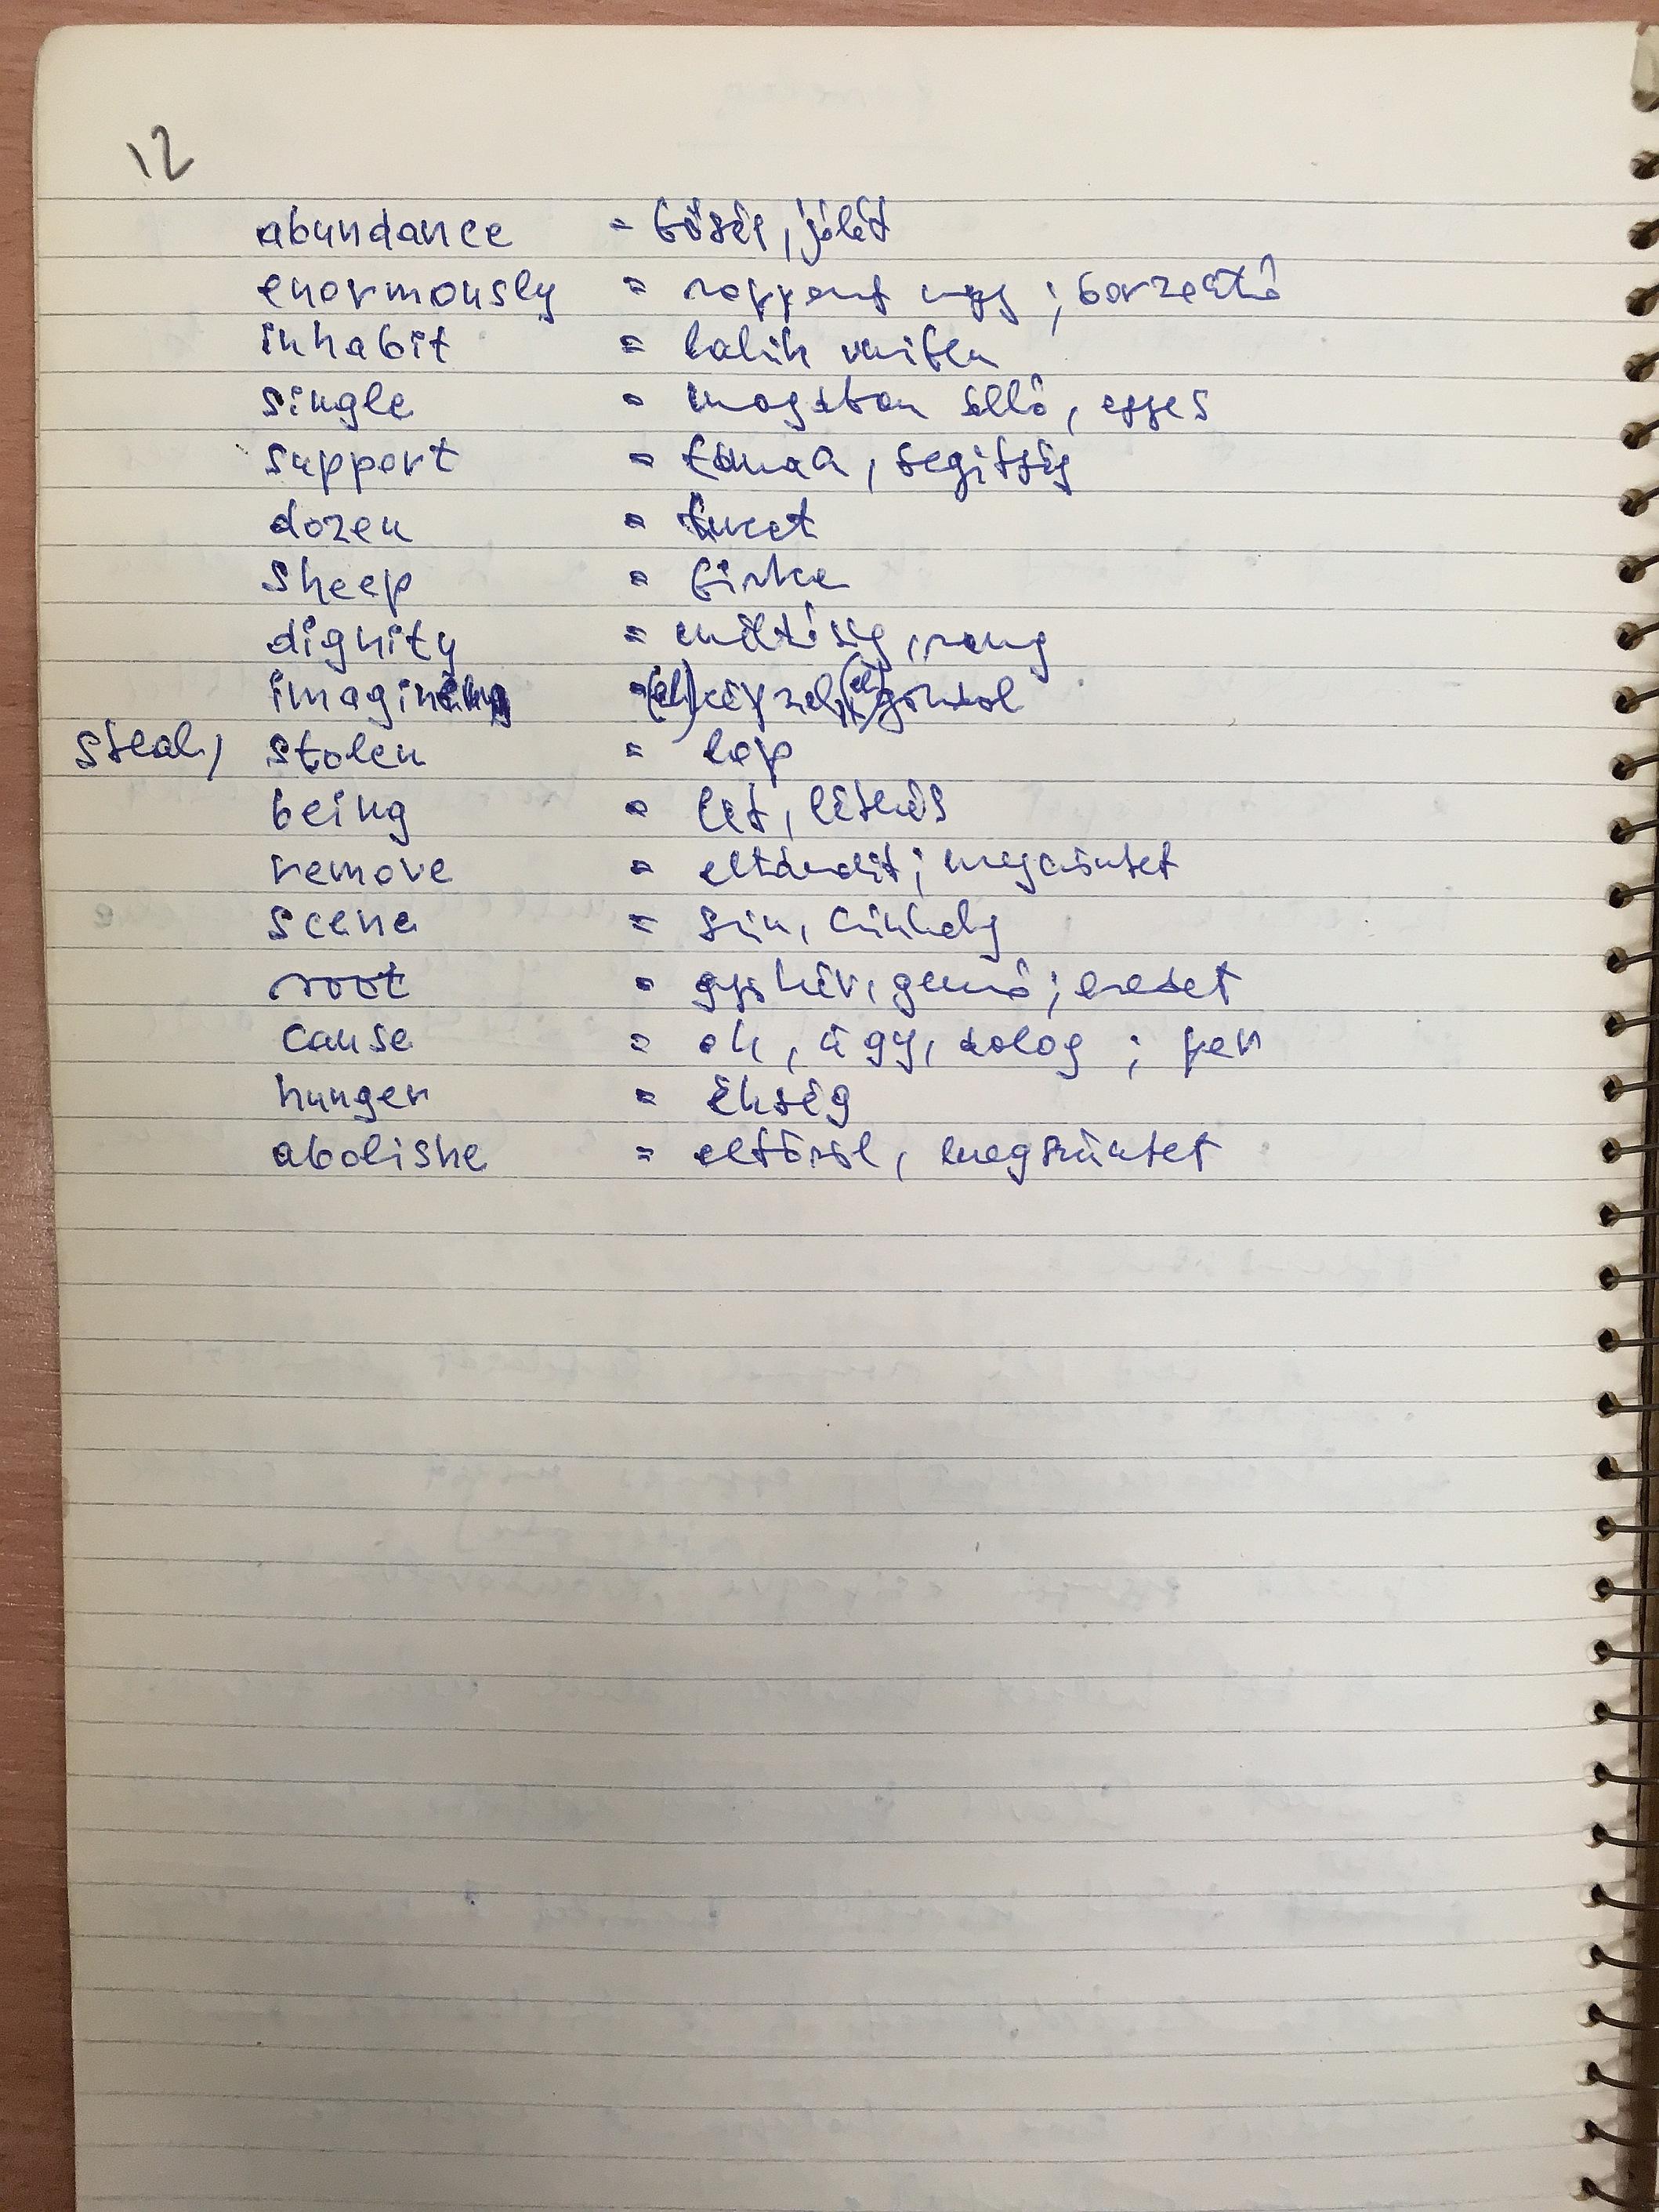 12
abundance = bőség, jólét
enormously = roppant nagy; borzasztó
inhabit = lakik vmiben
single = magában álló, egyes
support = támasz, segitség
dozen = tucat
sheep = birka
dignity = méltóság, rang
imagine = (el)képzel, (el)gondol
steal, stolen = lop
being = lét, létezés
remove = eltávolit; megszüntet
scene = szín, színhely
root = gyökér, gumó; eredet
cause = ok, ügy, dolog; per
hunger = éhség
abolishe = eltöröl, megszüntet